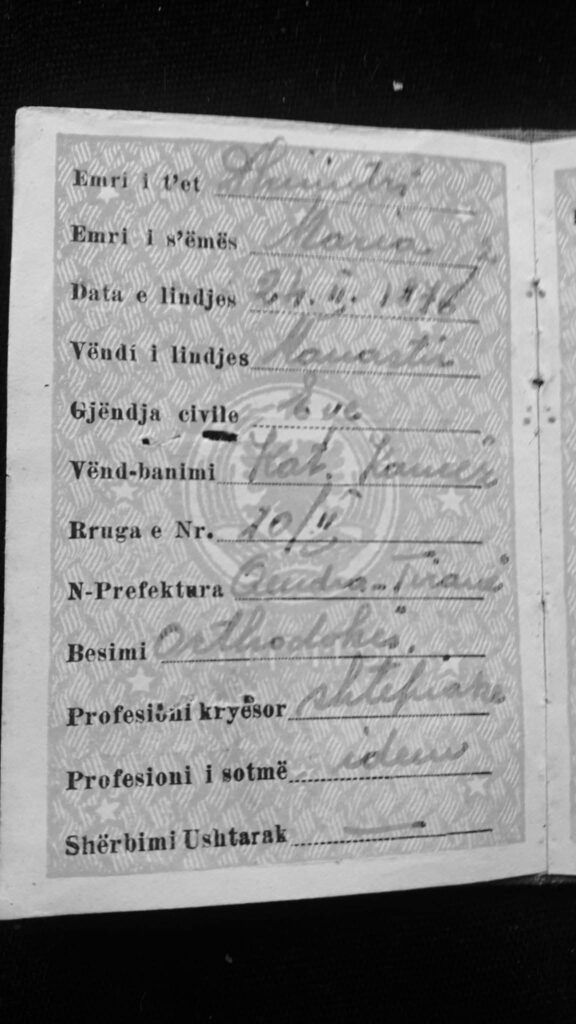 Emri i t'et Dhimitri
Emri i s'ëmës Maria
Data e lindjes 24. II. 1876
Vëndi i lindjes Manastir
Gjëndja civile e ve
Vënd-banimi Kat. Kamëz
Rruga e Nr. 20/II
N-Prefektura Qendra-Tiranë
Besimi Orthodokse
Profesioni kryësor shtëpiake
Profesioni i sotmë idem
Shërbimi Ushtarak —